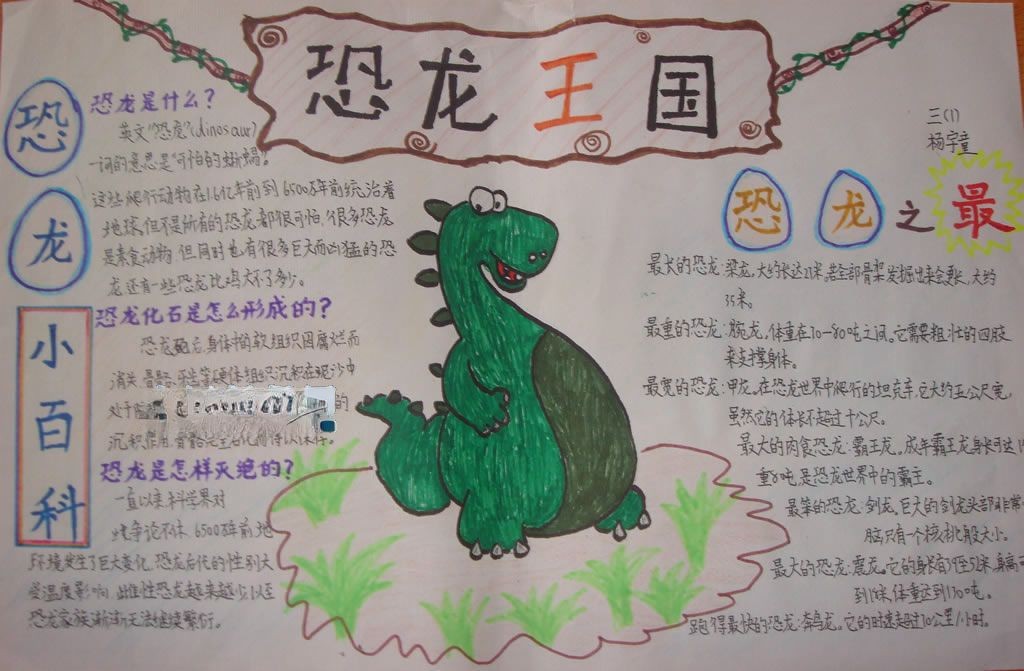 恐龙王国
三(1)
杨宇童
恐龙小百科
恐龙是什么?
英文"恐龙"(dinosaur)
一词的意思是"可怕的蜥蜴"。
这些爬行动物在1.6亿年前到6500万年前统治着
地球,但不是所有的恐龙都很可怕,很多恐龙
是素食动物,但同时也有很多巨大而凶猛的恐
龙还有一些恐龙比鸡大不了多少。
恐龙化石是怎么形成的?
恐龙死后,身体中的软组织因腐烂而
消失,骨骼、牙齿等硬体组织沉积在泥沙中
处于 的
沉积作用,骨骼完全石化而得以保存。
恐龙是怎样灭绝的?
一直以来科学界对
争论不休。6500万年前,地
环境发生了巨大变化,恐龙后代的性别大
受温度影响,雌性恐龙越来越少,以至
恐龙家族渐渐无法继续繁衍。
恐龙之最
最长的恐龙:梁龙,大约长达27米,若全部骨架发掘出来会更长,大约
35米。
最重的恐龙:腕龙,体重在70-80吨之间。它需要粗壮的四肢
来支撑身体。
最宽的恐龙:甲龙。在恐龙世界中爬行的坦克车,它大约五公尺宽,
虽然它的体长不超过十公尺。
最大的肉食恐龙:霸王龙,成年霸王龙身长可达1
重8吨,是恐龙世界中的霸主。
最笨的恐龙:剑龙,巨大的剑龙头部非常
脑只有个核桃般大小。
最大的恐龙:震龙。它的身长有39至52米,身高可
到18米,体重达到130吨。
跑得最快的恐龙:奔鸟龙。它的时速超过70公里/小时。